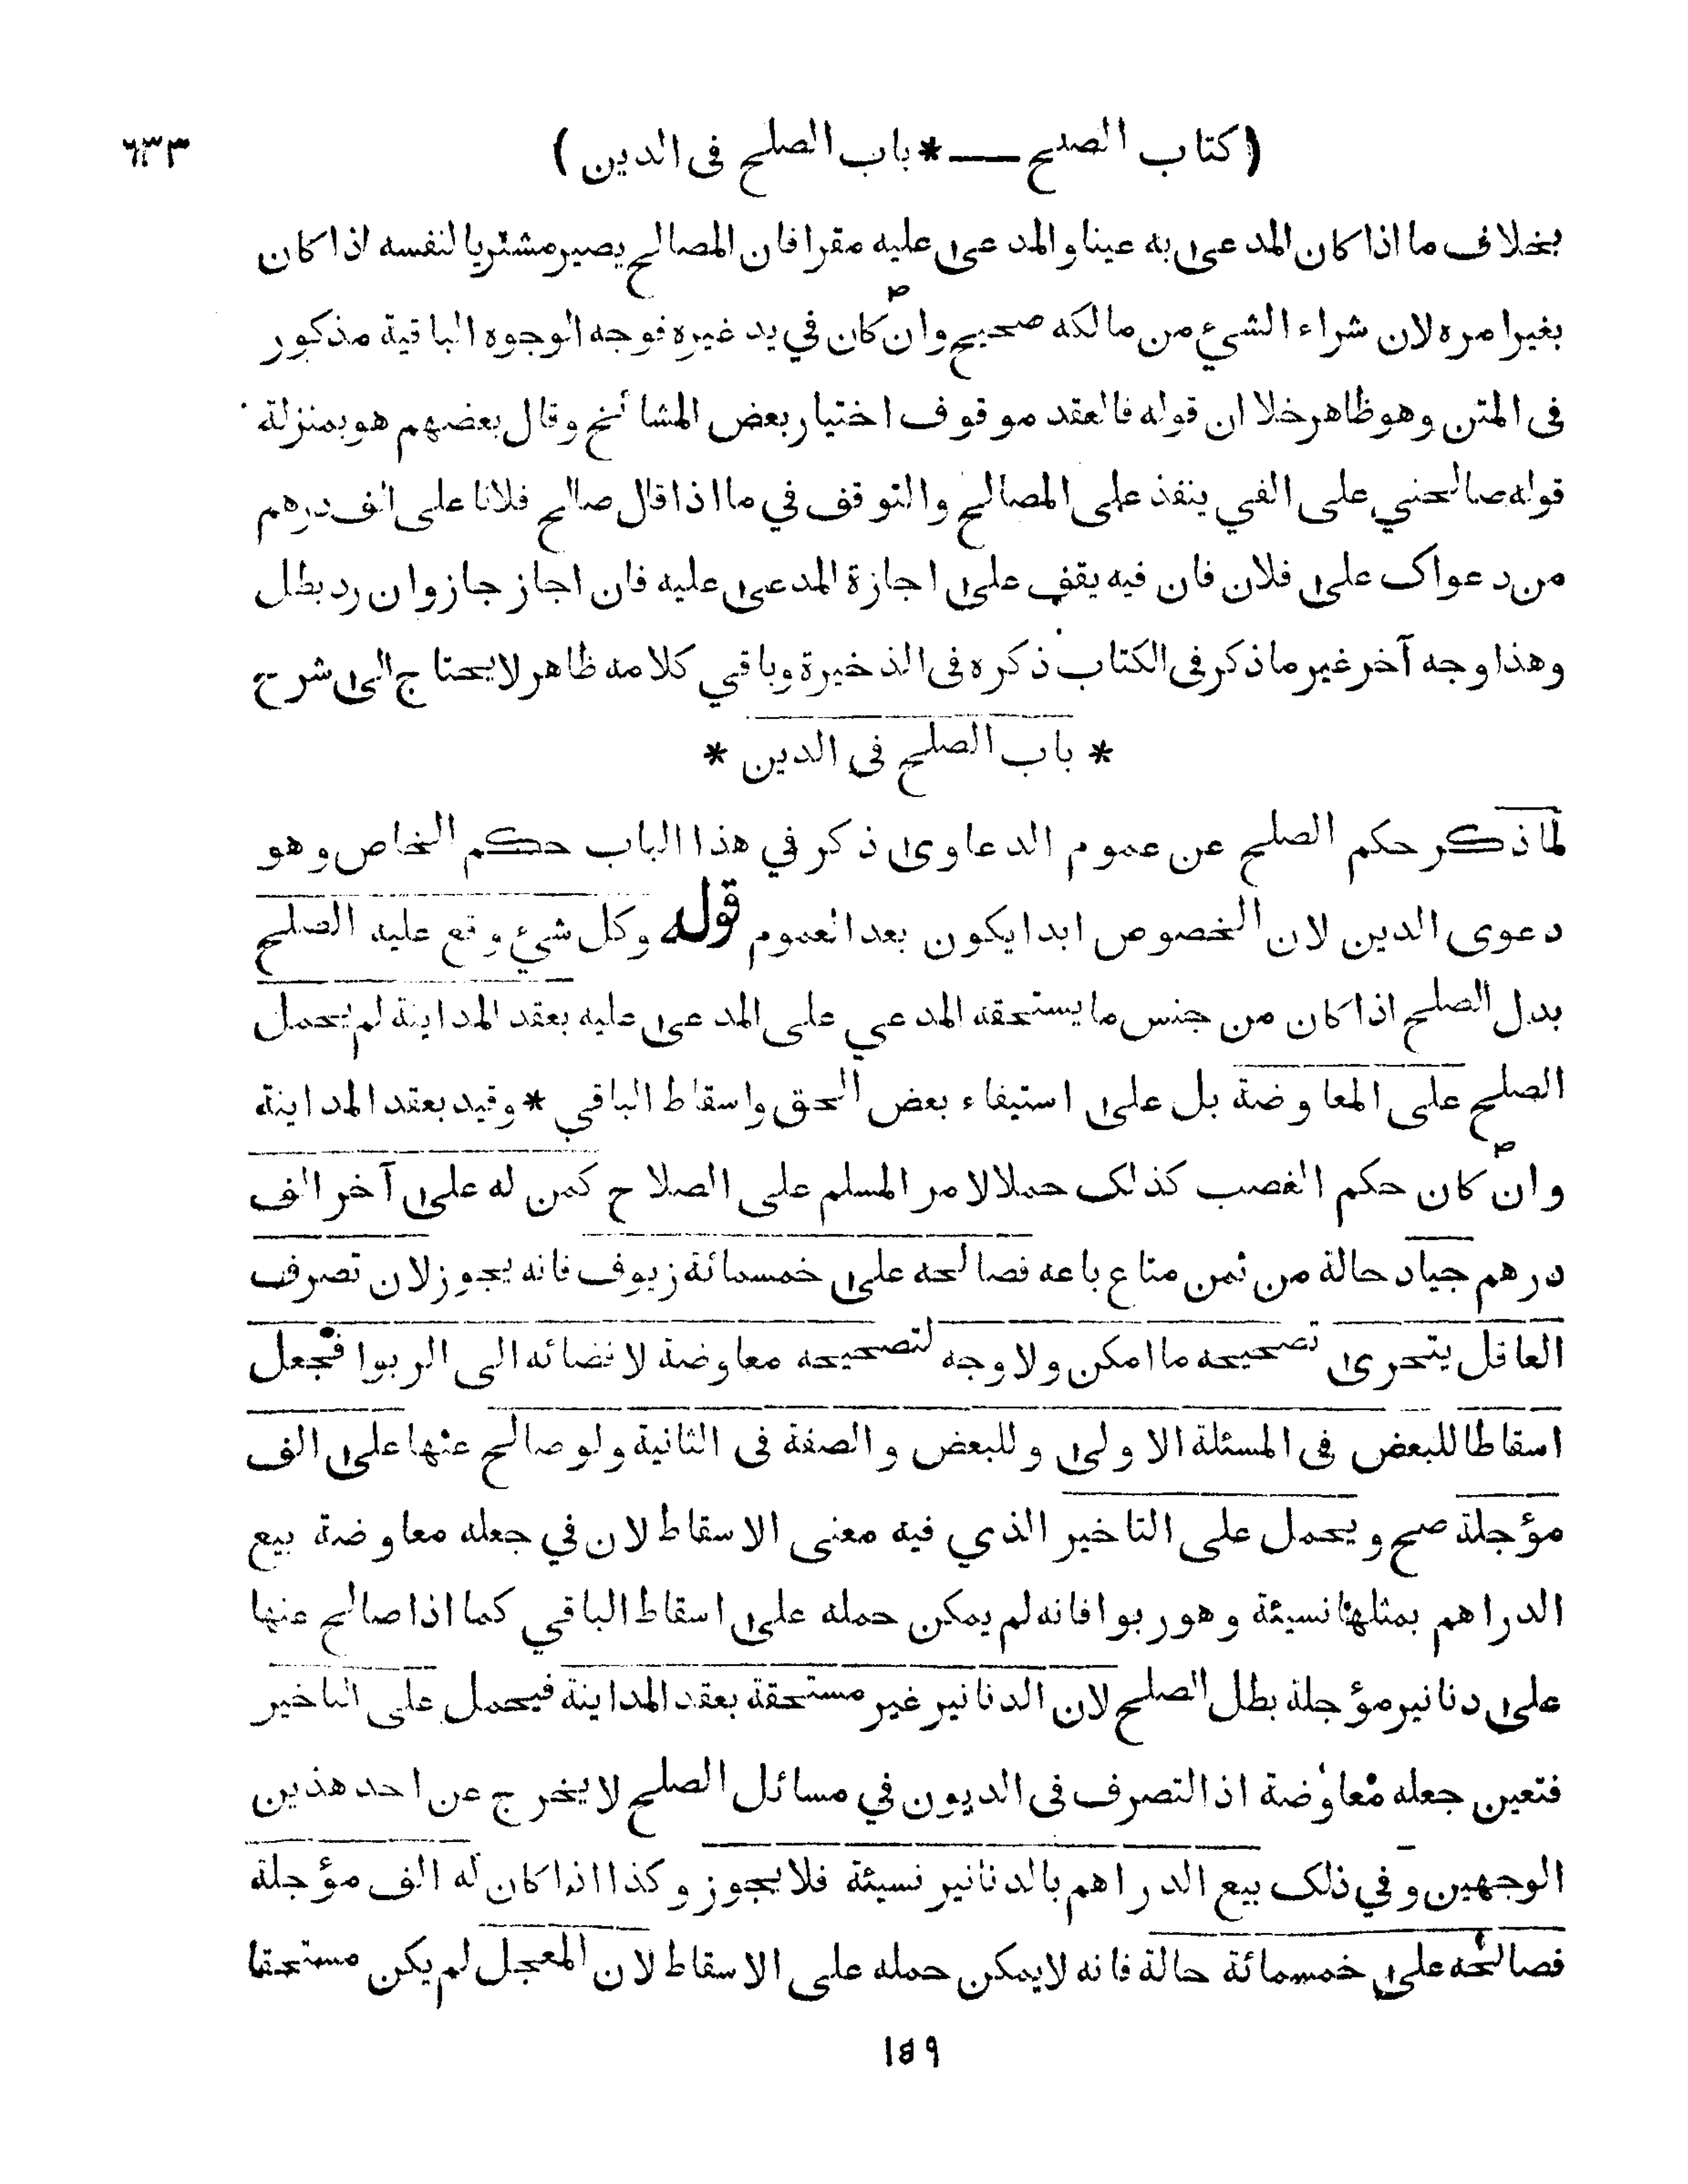 (كتاب الصلح — * باب الصلح فى الدين) ٦٣٣
بخلاف ما اذا كان المدعى به عينا والمدعى عليه مقرا فان المصالح يصير مشتريا لنفسه اذا كان
بغير امره لان شراء الشيء من مالكه صحيح وان كان في يد غيره فوجه الوجوه الباقية مذكور
فى المتن وهو ظاهر خلا ان قوله فالعقد موقوف اختيار بعض المشائخ وقال بعضهم هو بمنزلة
قوله صالحني على الفي ينفذ على المصالح والتوقف في ما اذا قال صالح فلانا على الف درهم
من دعواك على فلان فان فيه يقف على اجازة المدعى عليه فان اجاز جاز وان رد بطل
وهذا وجه آخر غير ما ذكر فى الكتاب ذكره فى الذخيرة وباقي كلامه ظاهر لا يحتاج الى شرح
* باب الصلح فى الدين *
لما ذكر حكم الصلح عن عموم الدعاوى ذكر في هذا الباب حكم الخاص وهو
دعوى الدين لان الخصوص ابدا يكون بعد العموم قوله وكل شيء وقع عليه الصلح
بدل الصلح اذا كان من جنس ما يستحقه المدعي على المدعى عليه بعقد المداينة لم يحمل
الصلح على المعاوضة بل على استيفاء بعض الحق واسقاط الباقي * وقيد بعقد المداينة
وان كان حكم الغصب كذلك حملا لامر المسلم على الصلاح كمن له على آخر الف
درهم جياد حالة من ثمن متاع باعه فصالحه على خمسمائة زيوف فانه يجوز لان تصرف
العاقل يتحرى تصحيحه ما امكن ولا وجه لتصحيحه معاوضة لافضائه الى الربوا فجعل
اسقاطا للبعض فى المسئلة الاولى وللبعض والصفة فى الثانية ولو صالح عنها على الف
مؤجلة صح ويحمل على التاخير الذي فيه معنى الاسقاط لان في جعله معاوضة بيع
الدراهم بمثلها نسيئة وهو ربوا فانه لم يمكن حمله على اسقاط الباقي كما اذا صالح عنها
على دنانير مؤجلة بطل الصلح لان الدنانير غير مستحقة بعقد المداينة فيحمل على التاخير
فتعين جعله معاوضة اذ التصرف فى الديون في مسائل الصلح لا يخرج عن احد هذين
الوجهين وفي ذلك بيع الدراهم بالدنانير نسيئة فلا يجوز وكذا اذا كان له الف مؤجلة
فصالحه على خمسمائة حالة فانه لا يمكن حمله على الاسقاط لان المعجل لم يكن مستحقا
١٥٩